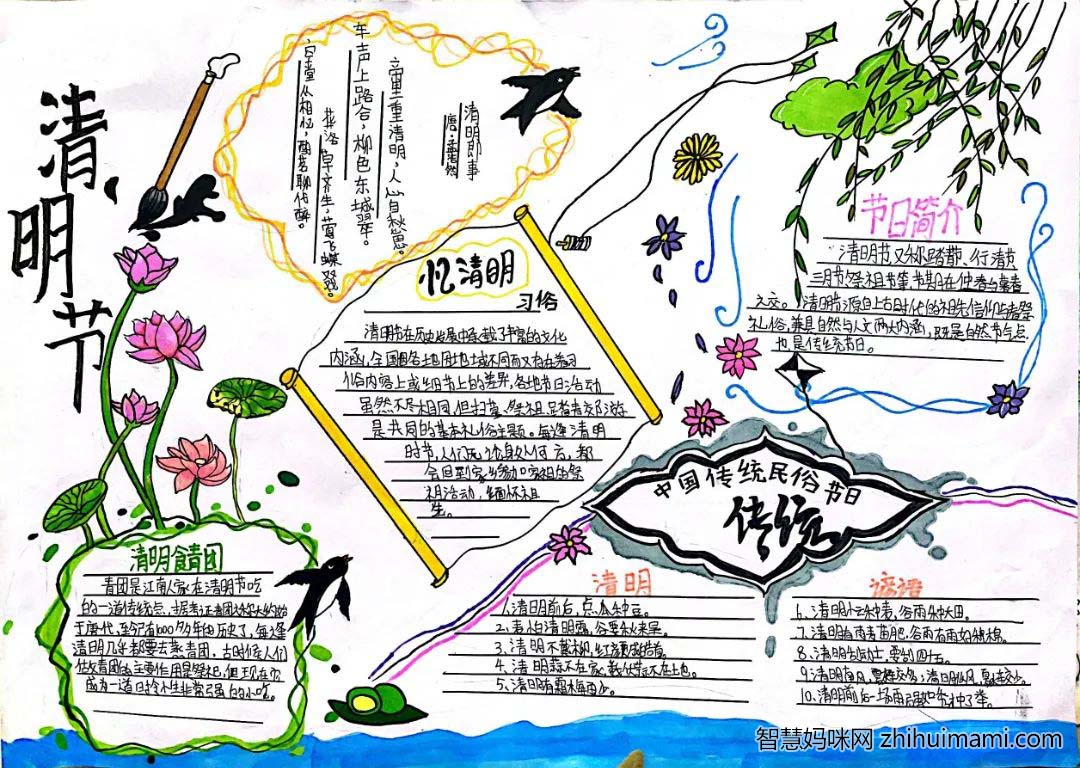 清明节
清明即事
唐·孟浩然
帝里重清明，人心自愁思。
车声上路合，柳色东城翠。
花落草齐生，莺飞蝶双戏。
空堂坐相忆，酌茗聊代醉。
忆清明
习俗
清明节在历史发展中承载了丰富的文化
内涵，全国各地因地域不同而又存在着习
俗内容上或细节上的差异，各地节日活动
虽然不尽相同，但扫墓、祭祖、踏青郊游
是共同的基本礼俗主题。每逢清明
时节，人们无论身处何方，都
会回到家乡参加家祖的祭
祖活动，缅怀祖
先。
节日简介
清明节又称踏青节、行清节
三月节、祭祖节等节期在仲春与暮春
之交。清明节源自上古时代的祖先信仰与春祭
礼俗，兼具自然与人文两大内涵，既是自然节气点
也是传统节日。
中国传统民俗节日
传统
清明食青团
青团是江南人家在清明节吃
的一道传统点
于唐代，至今已有1000多年的历史了，每逢
清明几乎都要去蒸青团，古时候人们
做青团的主要作用是祭祀，但现在它
成为一道时令性非常强的小吃。
清明
谚语
1、清明前后，点瓜种豆。
2、麦怕清明霜，谷要秋来旱。
3、清明不戴柳，红颜成皓首。
4、清明蔬不在家，
5、清明有霜梅雨少。
6、清明小麦种麦，谷雨种大田。
7、清明有雨麦苗肥，谷雨有雨好种棉。
8、清明刮动土，要刮四十五。
9、清明南风，夏水较多；清明北风，夏水较少。
10、清明前后一场雨，强如秀才中了举。
智慧妈咪网 zhihuimami.com